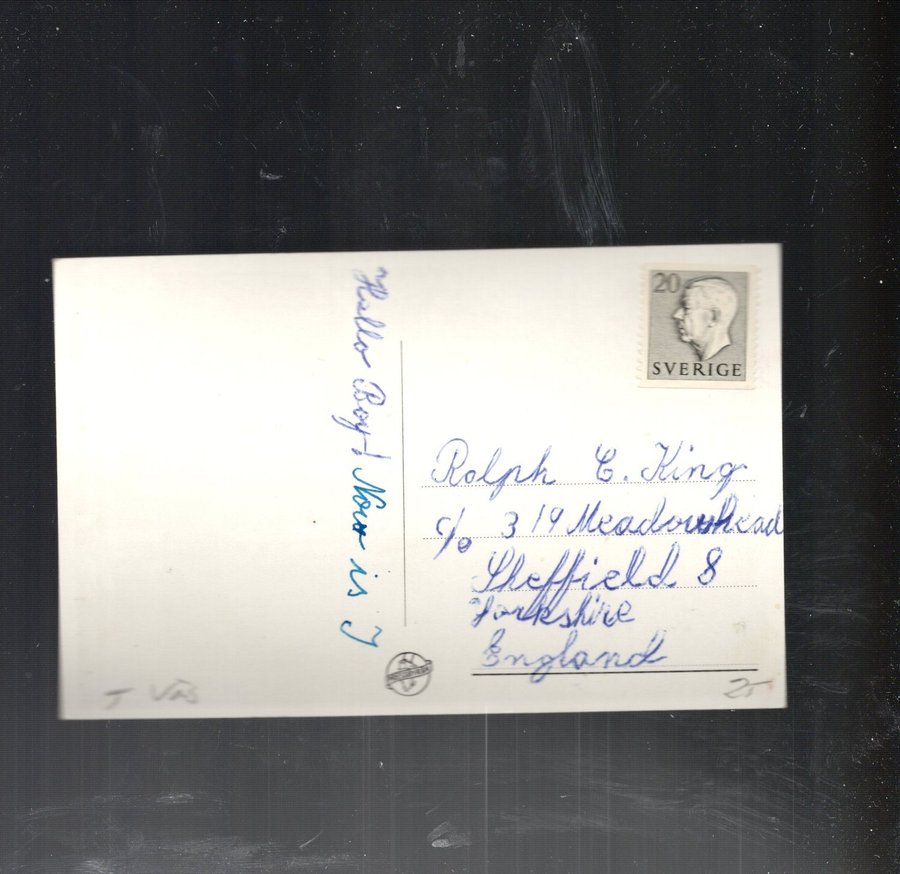 Hello Boy! Now is I
20
SVERIGE
Ralph C. King
c/o 319 Meadowhead
Sheffield 8
Yorkshire
England